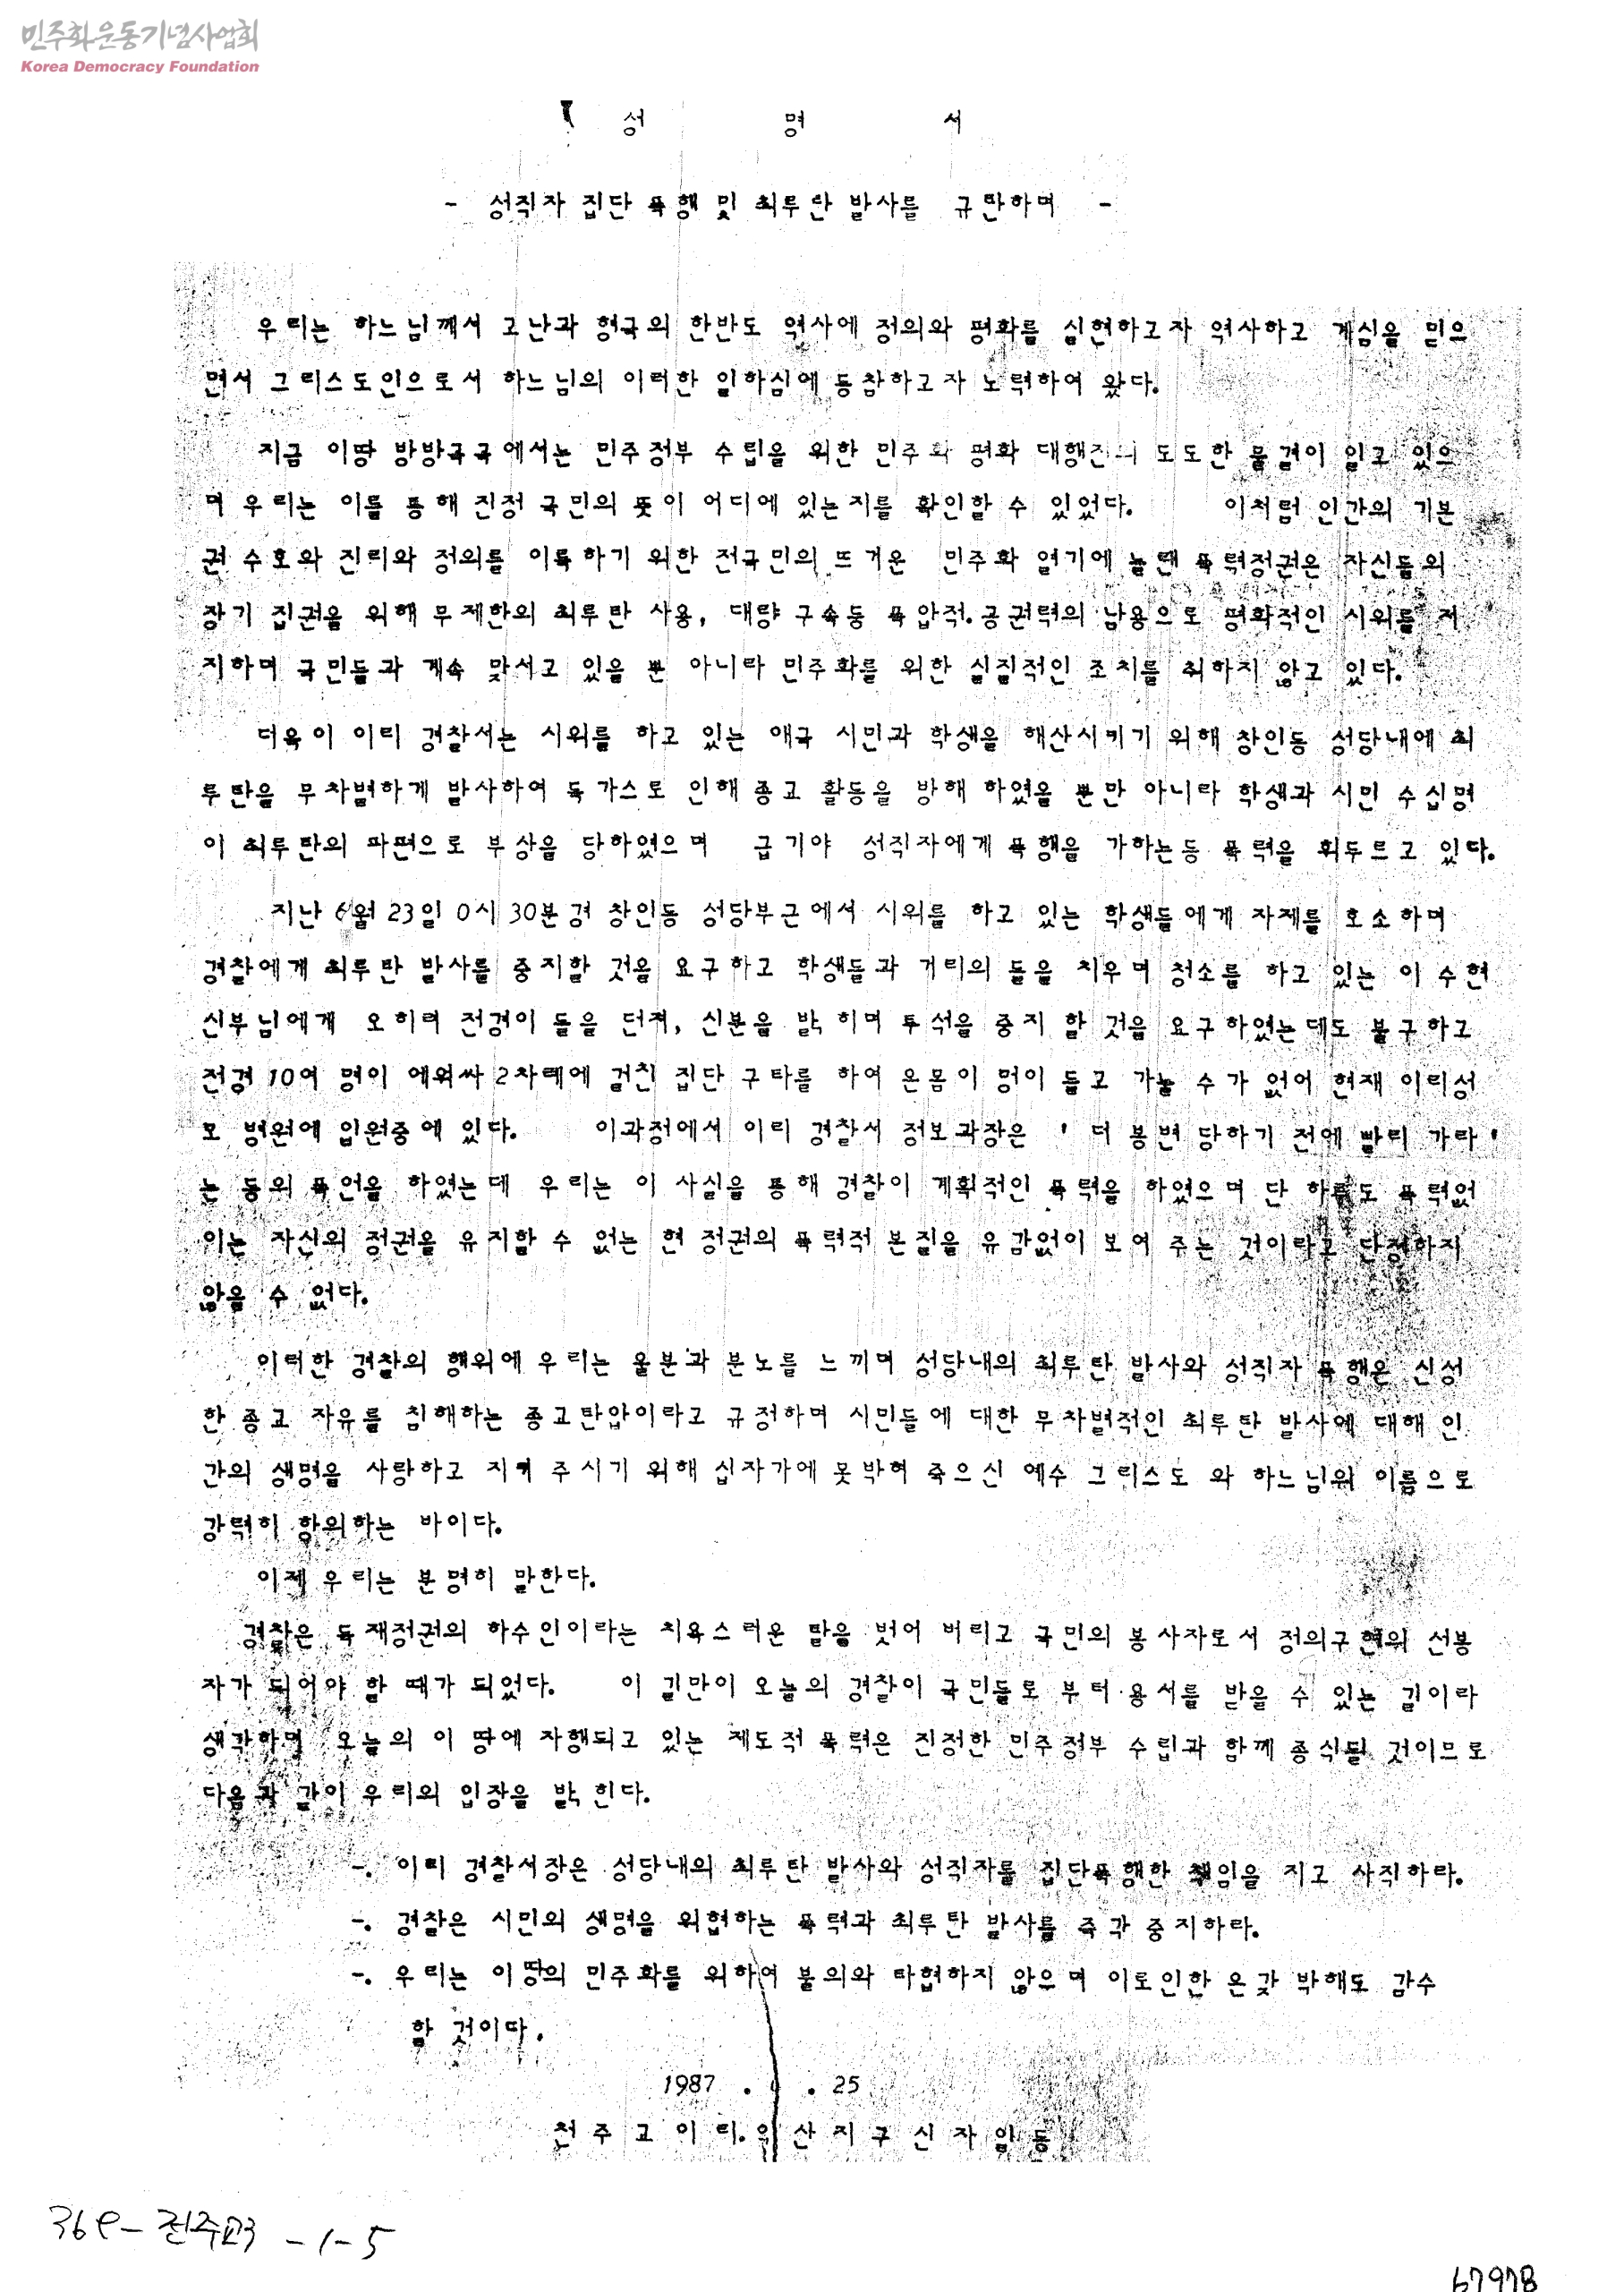 민주화운동기념사업회
Korea Democracy Foundation
성 명 서
- 성직자 집단 폭행 및 최루탄 발사를 규탄하며 -
우리는 하느님께서 고난과 형극의 한반도 역사에 정의와 평화를 실현하고자 역사하고 계심을 믿으
면서 그리스도인으로서 하느님의 이러한 일하심에 동참하고자 노력하여 왔다.
지금 이땅 방방곡곡에서는 민주정부 수립을 위한 민주화 평화 대행진의 도도한 물결이 일고 있으
며 우리는 이를 통해 진정 국민의 뜻이 어디에 있는지를 확인할 수 있었다. 이처럼 인간의 기본
권 수호와 진리와 정의를 이룩하기 위한 전국민의 뜨거운 민주화 열기에 놀랜 폭력정권은 자신들의
장기 집권을 위해 무제한의 최루탄 사용, 대량 구속등 폭압적.공권력의 남용으로 평화적인 시위를 저
지하며 국민들과 계속 맞서고 있을 뿐 아니라 민주화를 위한 실질적인 조치를 취하지 않고 있다.
더욱이 이리 경찰서는 시위를 하고 있는 애국 시민과 학생을 해산시키기 위해 창인동 성당내에 최
루탄을 무차별하게 발사하여 독가스로 인해 종교 활동을 방해 하였을 뿐만 아니라 학생과 시민 수십명
이 최루탄의 파편으로 부상을 당하였으며 급기야 성직자에게 폭행을 가하는등 폭력을 휘두르고 있다.
지난 6월 23일 0시 30분경 창인동 성당부근에서 시위를 하고 있는 학생들에게 자제를 호소하며
경찰에게 최루탄 발사를 중지할 것을 요구하고 학생들과 거리의 돌을 치우며 청소를 하고 있는 이 수현
신부님에게 오히려 전경이 돌을 던져, 신분을 밝히며 투석을 중지 할 것을 요구하였는데도 불구하고
전경 10여 명이 에워싸 2차례에 걸친 집단 구타를 하여 온몸이 멍이 들고 가눌 수가 없어 현재 이리성
모 병원에 입원중에 있다. 이과정에서 이리 경찰서 정보과장은 ' 더 봉변 당하기 전에 빨리 가라 '
는 등의 폭언을 하였는데 우리는 이 사실을 통해 경찰이 계획적인 폭력을 하였으며 단 하루도 폭력없
이는 자신의 정권을 유지할 수 없는 현 정권의 폭력적 본질을 유감없이 보여 주는 것이라고 단정하지
않을 수 없다.
이러한 경찰의 행위에 우리는 울분과 분노를 느끼며 성당내의 최루탄 발사와 성직자 폭행은 신성
한 종교 자유를 침해하는 종교탄압이라고 규정하며 시민들에 대한 무차별적인 최루탄 발사에 대해 인
간의 생명을 사랑하고 지켜 주시기 위해 십자가에 못박혀 죽으신 예수 그리스도 와 하느님의 이름으로
강력히 항의하는 바이다.
이제 우리는 분명히 말한다.
경찰은 독재정권의 하수인이라는 치욕스러운 탈을 벗어 버리고 국민의 봉사자로서 정의구현의 선봉
자가 되어야 할 때가 되었다. 이 길만이 오늘의 경찰이 국민들로 부터 용서를 받을 수 있는 길이라
생각하며 오늘의 이 땅에 자행되고 있는 제도적 폭력은 진정한 민주정부 수립과 함께 종식될 것이므로
다음과 같이 우리의 입장을 밝힌다.
-. 이리 경찰서장은 성당내의 최루탄 발사와 성직자를 집단폭행한 책임을 지고 사직하라.
-. 경찰은 시민의 생명을 위협하는 폭력과 최루탄 발사를 즉각 중지하라.
-. 우리는 이땅의 민주화를 위하여 불의와 타협하지 않으며 이로인한 온갖 박해도 감수
할 것이다.
1987 . . 25
천 주 교 이 리. 익 산 지 구 신 자 일 동
369-전주교3-1-5
67978